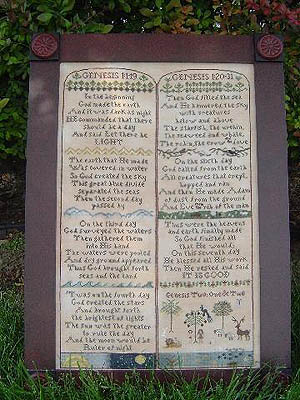 GENESIS 1:1-19
In the beginning
God made the earth
And it was dark as night
HE commanded that there
should be a day
And said Let there be
LIGHT
The earth that He made
Was covered in water
So God created the sky
This great blue divide
separated the seas
Then the second day
passed by
On the third day
God surveyed the waters
Then gathered them
into His hand
The waters were pooled
And dry ground appeared
Thus God brought forth
seas and the land
'Twas on the fourth day
God created the stars
And brought forth
the brightest of lights
The sun was the greater
to rule the day
And the moon would be
Ruler of night
GENESIS 1:20-31
Then God filled the sea
And He hammered the sky
with creatures
below and above
The starfish, the urchin,
the seaweed the whale,
The robin, the crow
On the sixth day
God called from the earth
All creatures that crept,
hopped and ran
And then He made Adam
of dust from the ground
And Eve of the man
Thus were the heavens
and earth finally made
So God finished all
that He would do
On this seventh day
He blessed all His work
Then He rested and said
IT IS GOOD
Genesis Two: One & Two